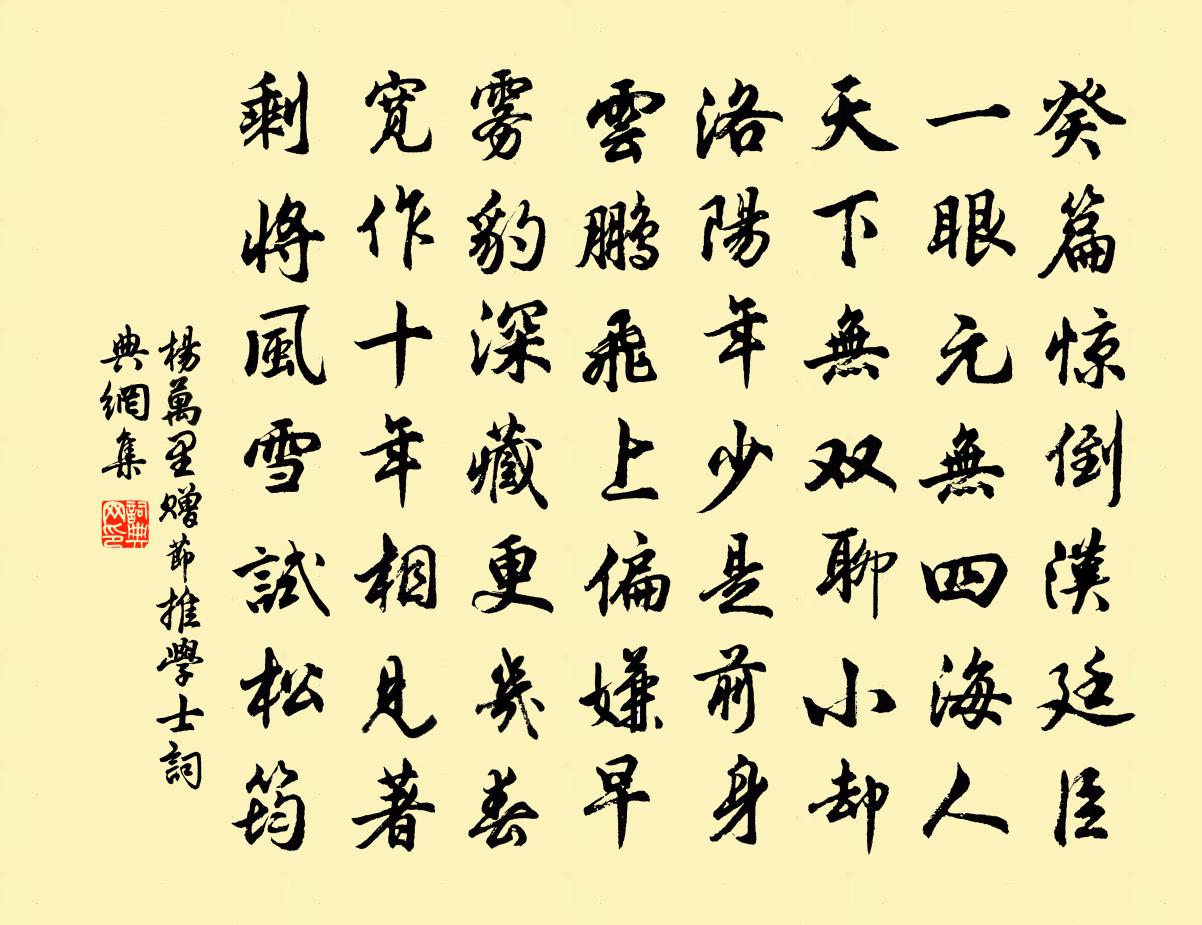 癸篇惊倒漢廷臣
一眼元無四海人
天下無双聊小却
洛陽年少是前身
雲鵬飛上偏嫌早
雾豹深藏更幾春
寛作十年相見著
剩將風雪試松筠
楊萬里贈節推學士詞
典網集
詞典
网印